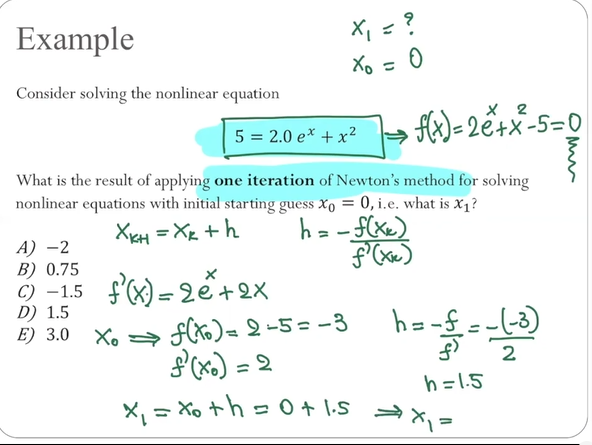 Example
x₁ = ?
x₀ = 0
Consider solving the nonlinear equation
5 = 2.0 eˣ + x² ⇒ f(x) = 2eˣ + x² - 5 = 0
What is the result of applying one iteration of Newton's method for solving
nonlinear equations with initial starting guess x₀ = 0, i.e. what is x₁?
xₖ₊₁ = xₖ + h h = - f(xₖ) / f'(xₖ)
A) −2
B) 0.75
C) −1.5
D) 1.5
E) 3.0
f'(x) = 2eˣ + 2x
x₀ ⇒ f(x₀) = 2 - 5 = -3 h = - f / f' = -(-3) / 2
f'(x₀) = 2
h = 1.5
x₁ = x₀ + h = 0 + 1.5 ⇒ x₁ =